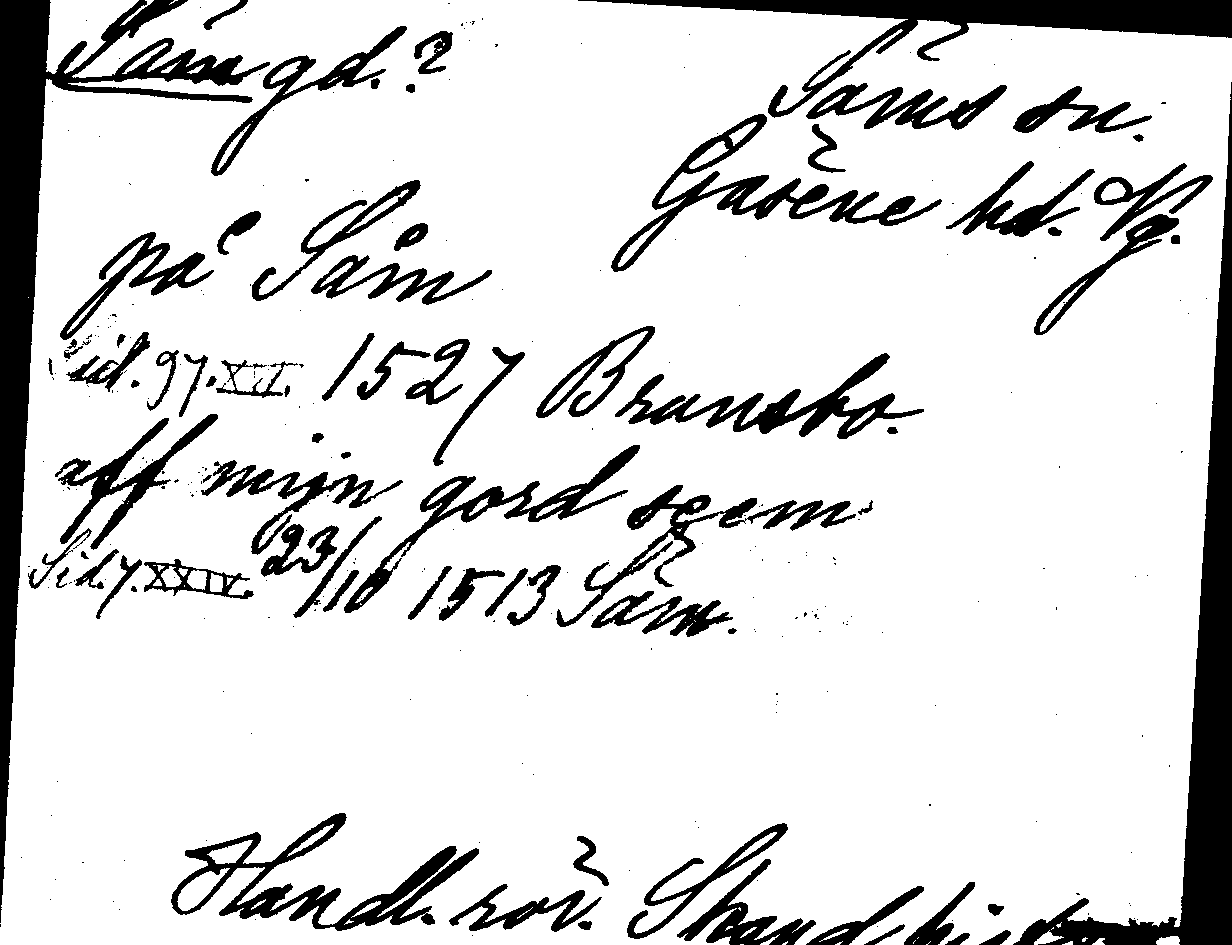 Såm gd.?
Såms sn.
Gäsene hd. Vg.
på Såm
Sid. 97. XVI. 1527 Bransbo.
aff mijn gord seem
Sid. 7. XXIV. 23/10 1513 Såm.
Handl. rör. Skand. hist.